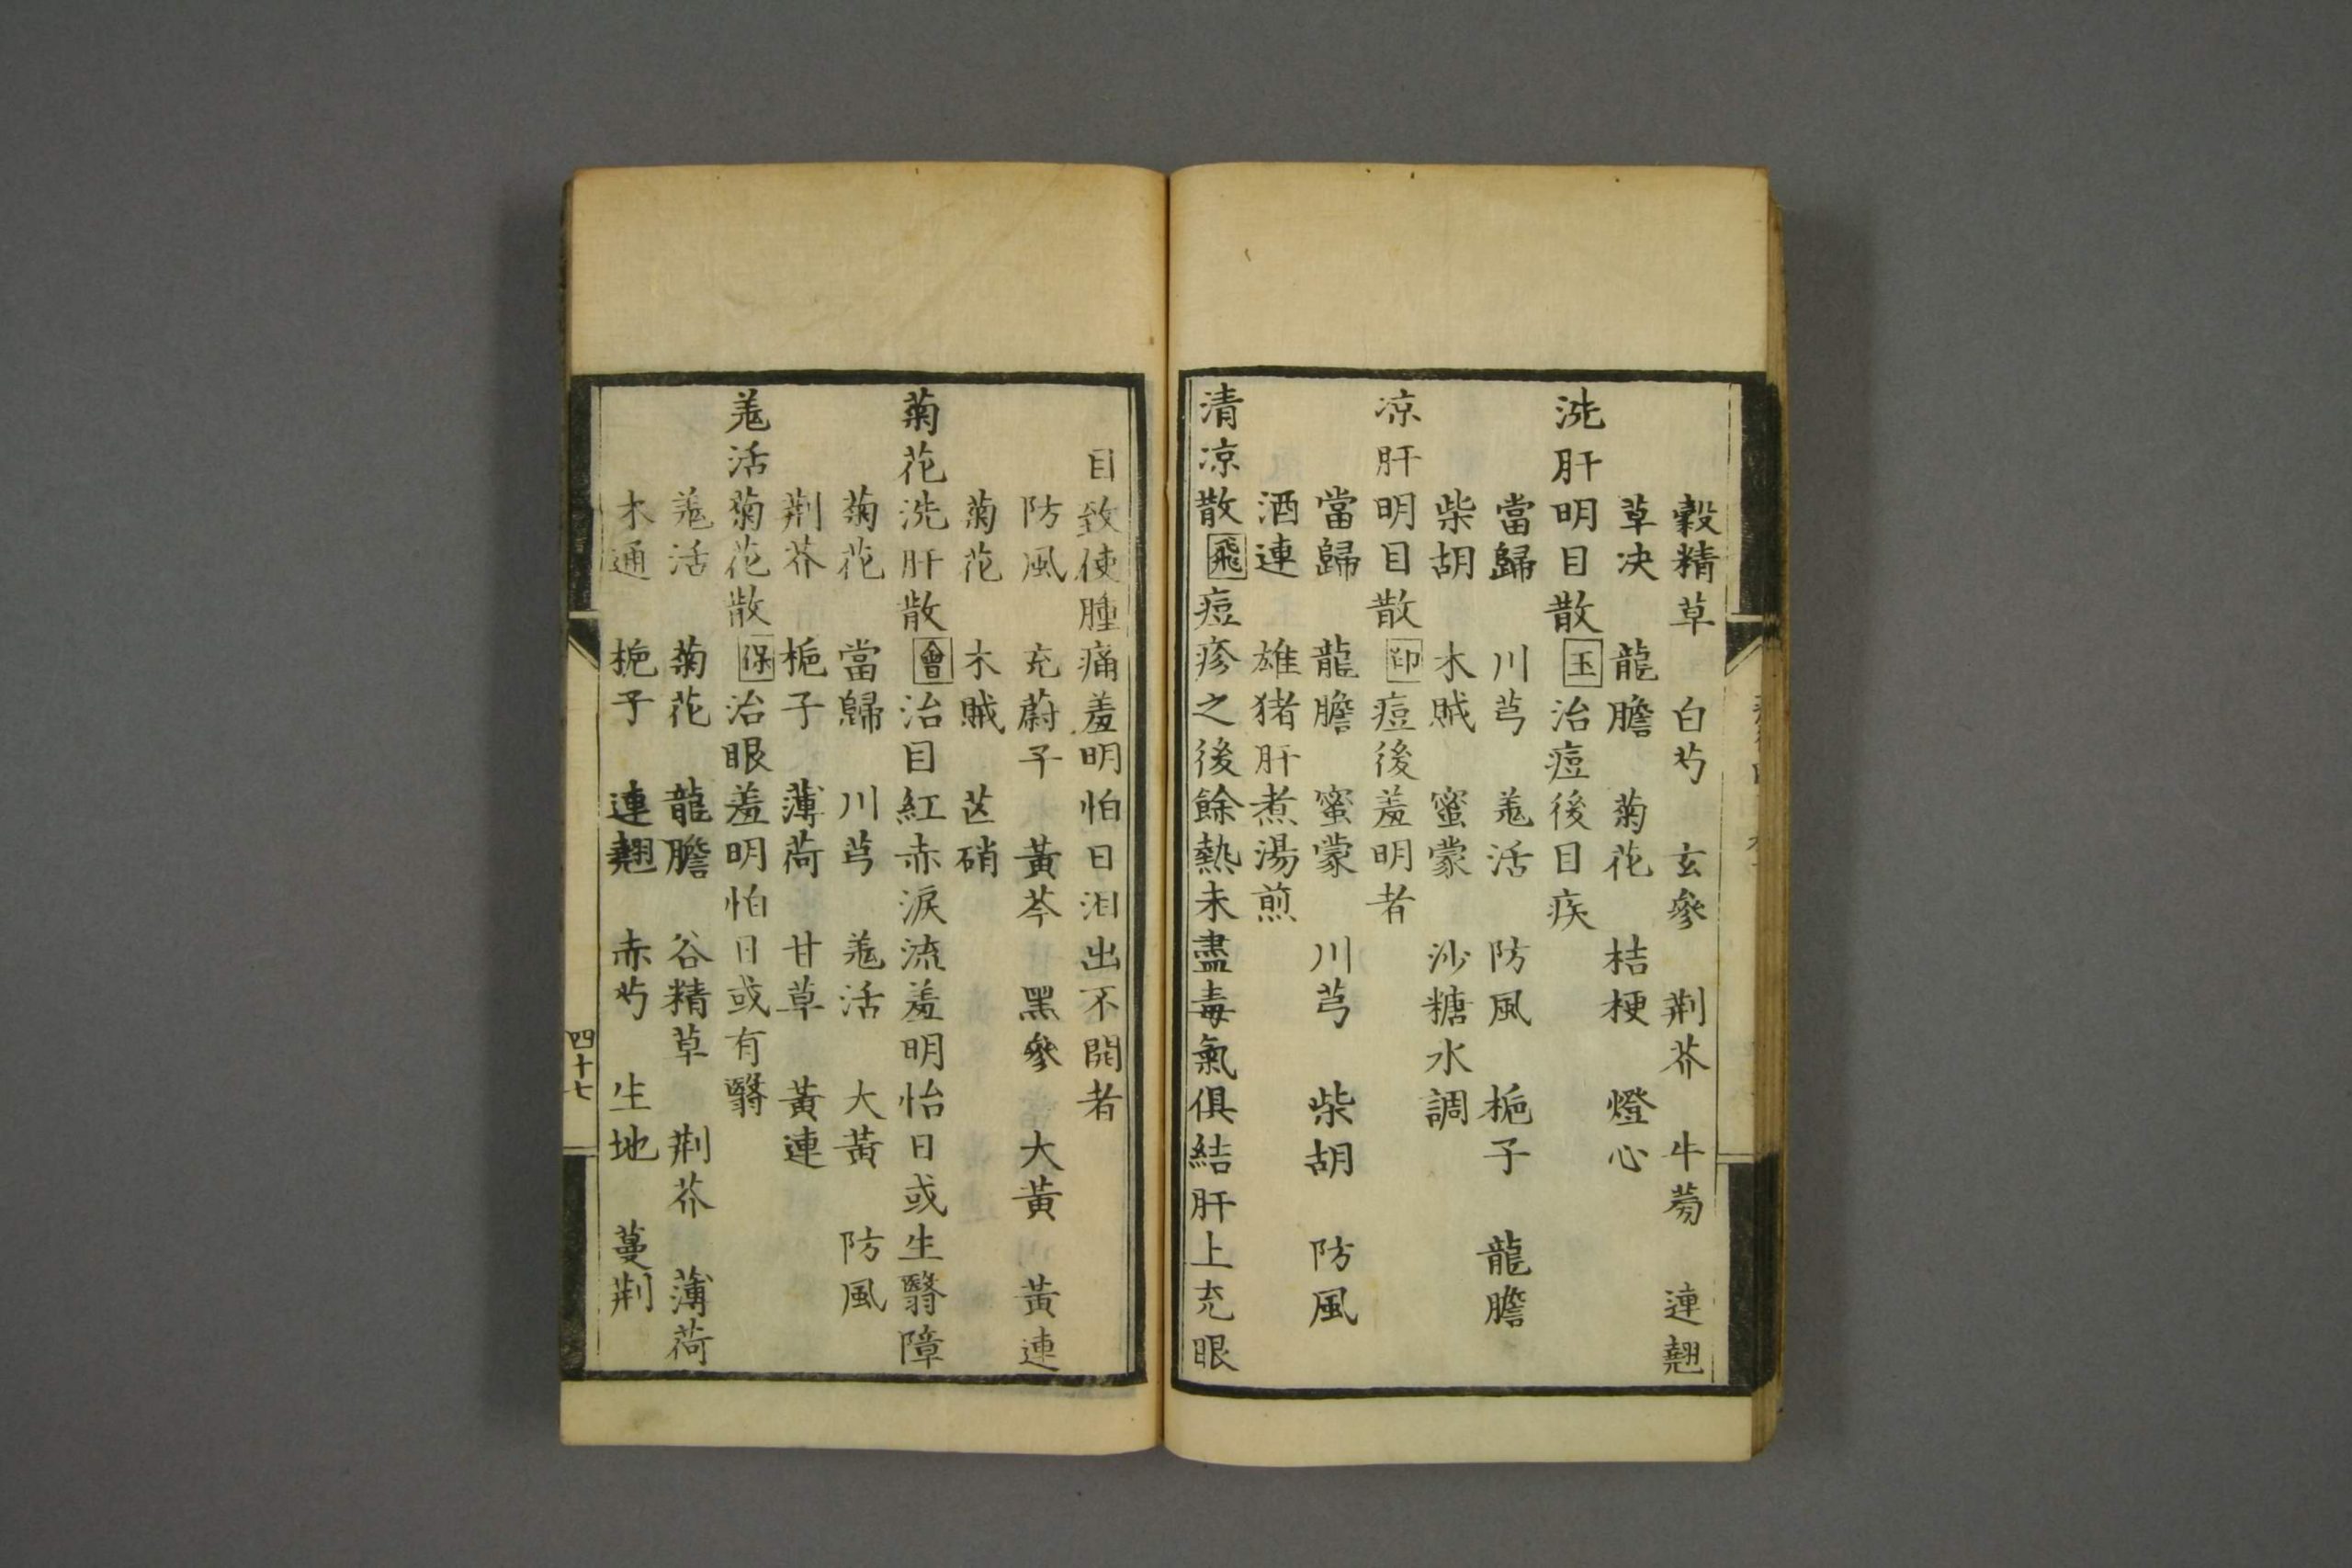 穀精草 白芍 玄參 荆芥 牛蒡 連翹
草决 龍膽 菊花 桔梗 燈心
洗肝明目散 玉 治痘後目疾
當歸 川芎 羗活 防風 梔子 龍膽
柴胡 木賊 蜜蒙 沙糖水調
凉肝明目散 印 痘後羞明者
當歸 龍膽 蜜蒙 川芎 柴胡 防風
酒連 雄猪肝煮湯煎
清凉散 飛 痘疹之後餘熱未盡毒氣俱結肝上充眼
目致使腫痛羞明怕日泪出不開者
防風 充蔚子 黃芩 黑參 大黃 黃連
菊花 木賊 芒硝
菊花洗肝散 會 治目紅赤淚流羞明怡日或生翳障
菊花 當歸 川芎 羗活 大黃 防風
荆芥 梔子 薄荷 甘草 黃連
羗活菊花散 保 治眼羞明怕日或有翳
羗活 菊花 龍膽 谷精草 荆芥 薄荷
木通 梔子 連翹 赤芍 生地 蔓荆
四十七